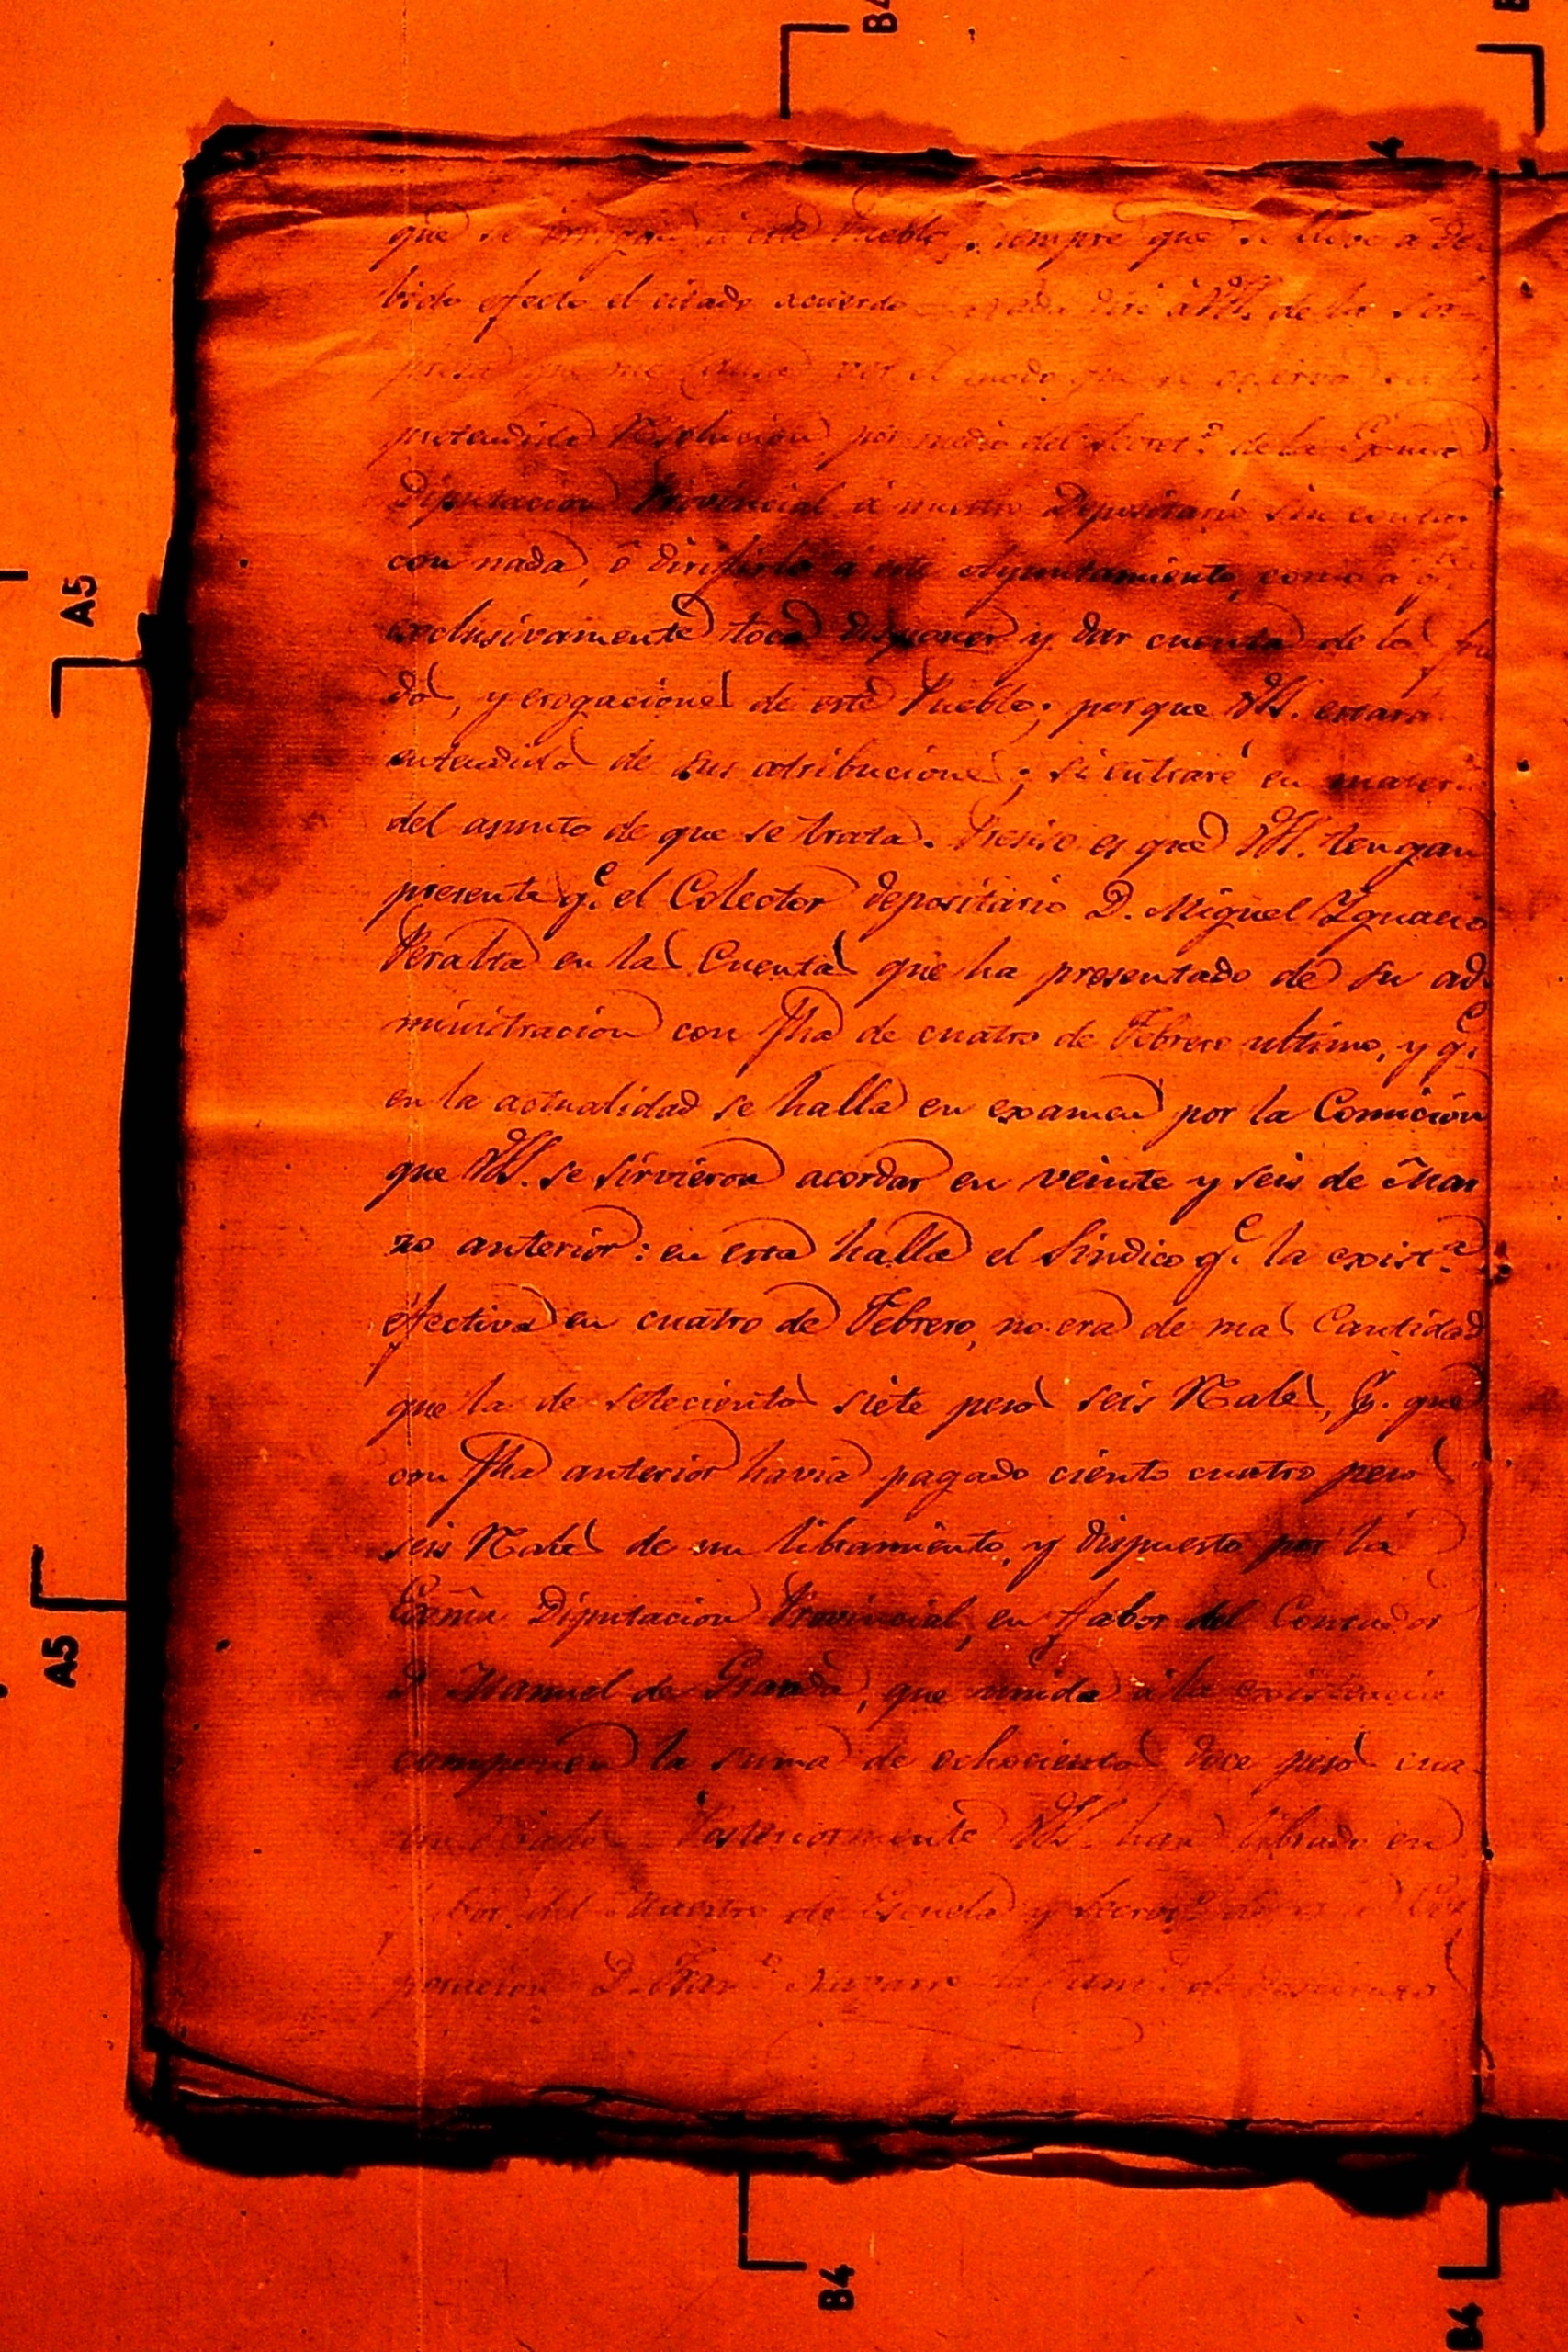 que se á este Pueblo, siempre que se lleve a de
bido efecto el citado acuerdo nada diré á VV. de la Sor
presa que me causa por el modo que se observó
pretendida Resolucion, por medio del Secret.º de la Exma
Diputacion Provincial á nuestro Depositario sin contar
con nada, ó dirijirla á este Ayuntamiento, como a q.n
exclusivamente toca disponer y dar cuenta de los fon
dos, y erogaciones de este Pueblo; porque VV. estarán
entendidos de sus atribuciones; si entraré en materia
del asunto de que se trata. Preciso es que VV. tengan
presente q.e el Colector depositario D. Miguel Ygnacio
Peralta en las Cuentas que ha presentado de su ad
ministracion con fha de cuatro de Febrero ultimo, y q.e
en la actualidad se halla en examen por la Comicion
que VV. se sirvieron acordar en veinte y seis de Mar
zo anterior: en esta halla el Sindico q.e la exist.a
efectiva en cuatro de Febrero, no era de mas Cantidad
que la de setecientos siete pesos seis Rales, p.r que
con fha anterior havia pagado ciento cuatro pesos
seis Rales de un libramiento, y dispuesto por la
Exma Diputacion Provincial, en fabor del Contador
D. Manuel de Granda, que unida á la existencia
componen la suma de ochocientos doce pesos cua
tro Posteriormente VV. han librado en
bor del Maestro de Escuela y Secret.º de Cor
poracion D. Fran.co Navarro la Cant.d de doscientos
A5
A5
B4
B4
B4